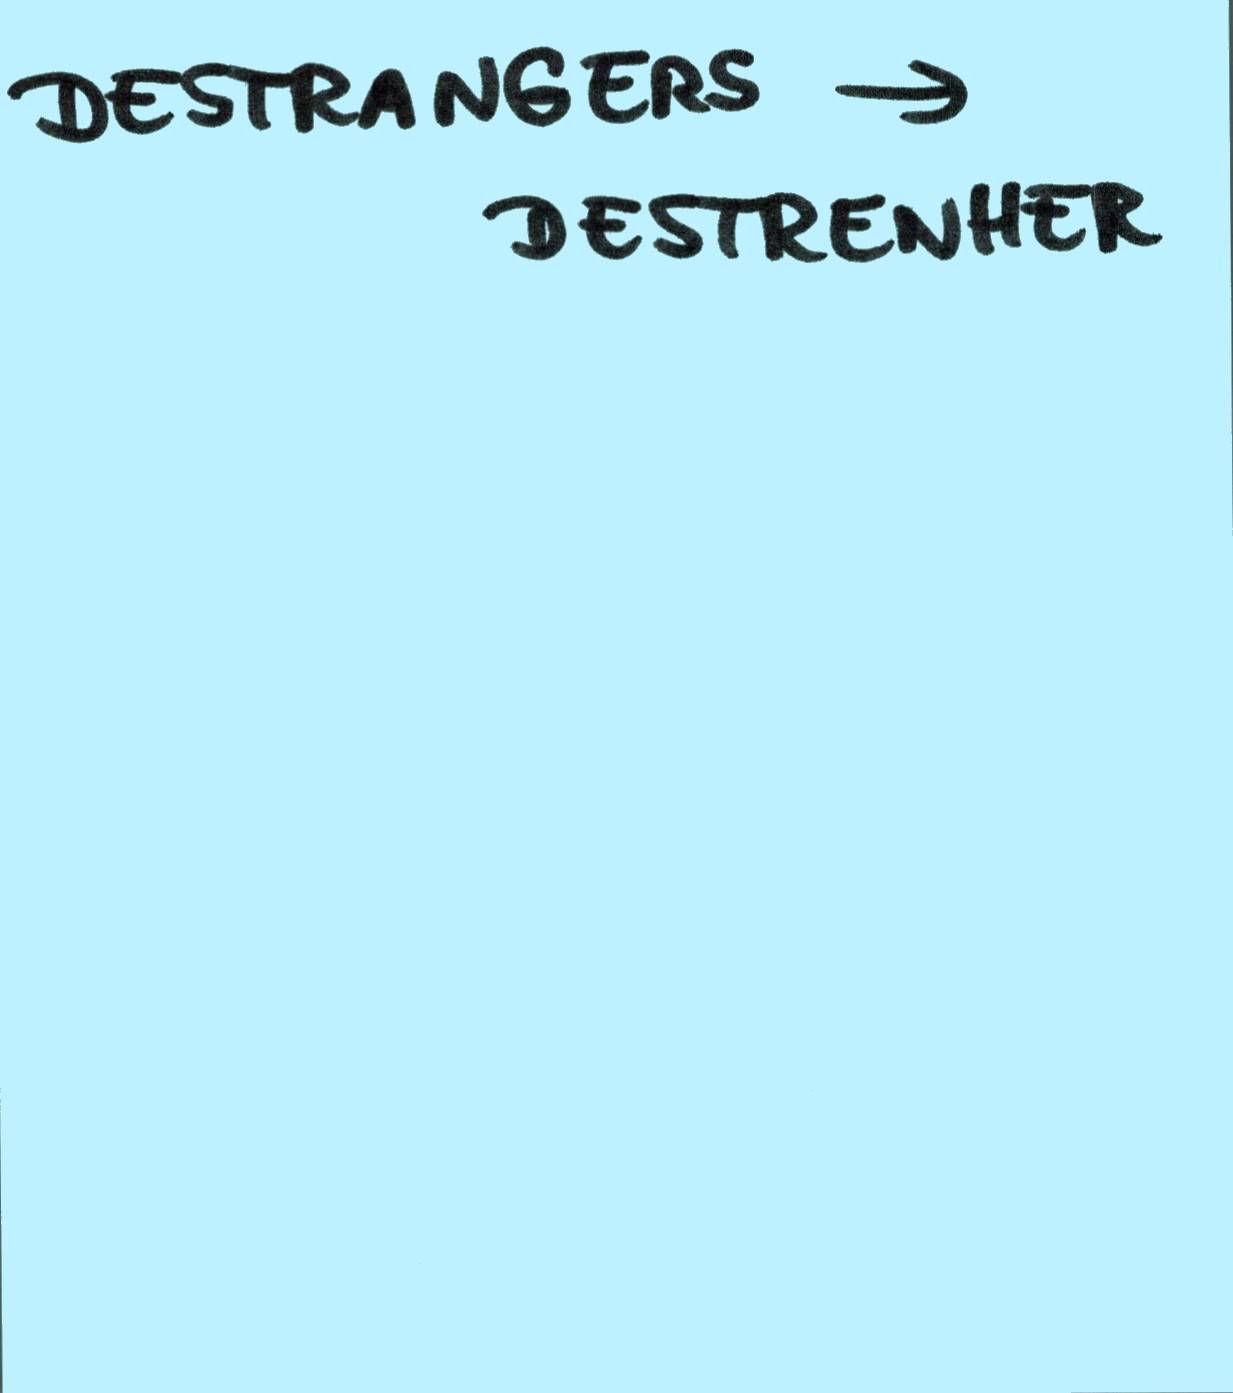 DESTRANGERS →
DESTRENHER